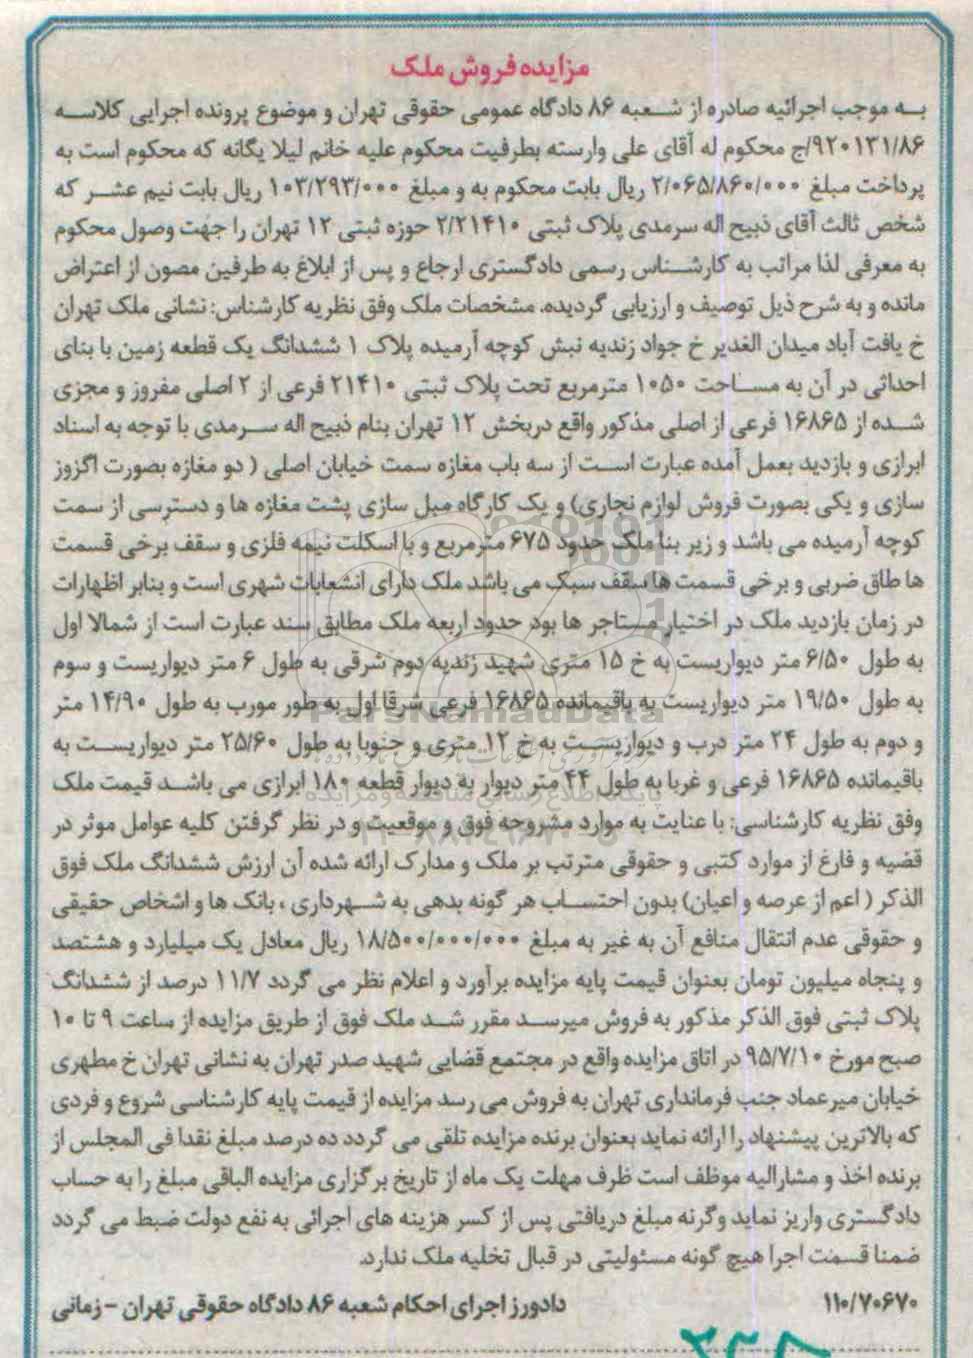 مزایده فروش ملک
به موجب اجرائیه صادره از شعبه ۸۶ دادگاه عمومی حقوقی تهران و موضوع پرونده اجرایی کلاسه
۹۲۰۱۳۱/۸۶/ج محکوم له آقای علی وارسته بطرفیت محکوم علیه خانم لیلا یگانه که محکوم است به
پرداخت مبلغ ۲/۰۶۵/۸۶۰/۰۰۰ ریال بابت محکوم به و مبلغ ۱۰۳/۲۹۳/۰۰۰ ریال بابت نیم عشر که
شخص ثالث آقای ذبیح اله سرمدی پلاک ثبتی ۲/۲۱۴۱۰ حوزه ثبتی ۱۲ تهران را جهت وصول محکوم
به معرفی لذا مراتب به کارشناس رسمی دادگستری ارجاع و پس از ابلاغ به طرفین مصون از اعتراض
مانده و به شرح ذیل توصیف و ارزیابی گردیده. مشخصات ملک وفق نظریه کارشناس: نشانی ملک تهران
خ یافت آباد میدان الغدیر خ جواد زندیه نبش کوچه آرمیده پلاک ۱ ششدانگ یک قطعه زمین با بنای
احداثی در آن به مساحت ۱۰۵۰ مترمربع تحت پلاک ثبتی ۲۱۴۱۰ فرعی از ۲ اصلی مفروز و مجزی
شده از ۱۶۸۶۵ فرعی از اصلی مذکور واقع دربخش ۱۲ تهران بنام ذبیح اله سرمدی با توجه به اسناد
ابرازی و بازدید بعمل آمده عبارت است از سه باب مغازه سمت خیابان اصلی ( دو مغازه بصورت اگزوز
سازی و یکی بصورت فروش لوازم نجاری) و یک کارگاه مبل سازی پشت مغازه ها و دسترسی از سمت
کوچه آرمیده می باشد و زیر بنا ملک حدود ۶۷۵ مترمربع و با اسکلت نیمه فلزی و سقف برخی قسمت
ها طاق ضربی و برخی قسمت ها سقف سبک می باشد ملک دارای انشعابات شهری است و بنابر اظهارات
در زمان بازدید ملک در اختیار مستاجر ها بود حدود اربعه ملک مطابق سند عبارت است از شمالا اول
به طول ۶/۵۰ متر دیواریست به خ ۱۵ متری شهید زندیه دوم شرقی به طول ۶ متر دیواریست و سوم
به طول ۱۹/۵۰ متر دیواریست به باقیمانده ۱۶۸۶۵ فرعی شرقا اول به طور مورب به طول ۱۴/۹۰ متر
و دوم به طول ۲۴ متر درب و دیواریست به خ ۱۲ متری و جنوبا به طول ۲۵/۶۰ متر دیواریست به
باقیمانده ۱۶۸۶۵ فرعی و غربا به طول ۴۴ متر دیوار به دیوار قطعه ۱۸۰ ابرازی می باشد قیمت ملک
وفق نظریه کارشناسی: با عنایت به موارد مشروحه فوق و موقعیت و در نظر گرفتن کلیه عوامل موثر در
قضیه و فارغ از موارد کتبی و حقوقی مترتب بر ملک و مدارک ارائه شده آن ارزش ششدانگ ملک فوق
الذکر ( اعم از عرصه و اعیان) بدون احتساب هر گونه بدهی به شهرداری ، بانک ها و اشخاص حقیقی
و حقوقی عدم انتقال منافع آن به غیر به مبلغ ۱۸/۵۰۰/۰۰۰/۰۰۰ ریال معادل یک میلیارد و هشتصد
و پنجاه میلیون تومان بعنوان قیمت پایه مزایده برآورد و اعلام نظر می گردد ۱۱/۷ درصد از ششدانگ
پلاک ثبتی فوق الذکر مذکور به فروش میرسد مقرر شد ملک فوق از طریق مزایده از ساعت ۹ تا ۱۰
صبح مورخ ۹۵/۷/۱۰ در اتاق مزایده واقع در مجتمع قضایی شهید صدر تهران به نشانی تهران خ مطهری
خیابان میرعماد جنب فرمانداری تهران به فروش می رسد مزایده از قیمت پایه کارشناسی شروع و فردی
که بالاترین پیشنهاد را ارائه نماید بعنوان برنده مزایده تلقی می گردد ده درصد مبلغ نقدا فی المجلس از
برنده اخذ و مشارالیه موظف است ظرف مهلت یک ماه از تاریخ برگزاری مزایده الباقی مبلغ را به حساب
دادگستری واریز نماید وگرنه مبلغ دریافتی پس از کسر هزینه های اجرائی به نفع دولت ضبط می گردد
ضمنا قسمت اجرا هیچ گونه مسئولیتی در قبال تخلیه ملک ندارد.
۱۱۰/۷۰۶۷۰ دادورز اجرای احکام شعبه ۸۶ دادگاه حقوقی تهران - زمانی
ParsNamadData